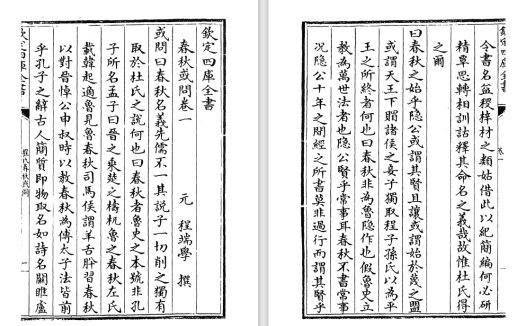 欽定四庫全書
春秋或問卷一
元 程端學 撰
或問曰春秋名義先儒不一其說子一切削之獨有
取於杜氏之說何也曰春秋者魯史之本號非孔
子所名孟子曰晉之乘楚之檮杌魯之春秋左氏
載韓起適魯見魯春秋司馬侯謂羊舌肸習春秋
以對晉悼公申叔時以教春秋為傳太子法皆前
乎孔子之辭古人簡質即物取名如詩名關雎盧
欽定四庫全書
卷一
令書名益稷梓材之類姑借此以紀簡編何必研
精覃思轉相訓詁釋其命名之義哉故惟杜氏得
之爾
曰春秋之始乎隱公或謂其賢且讓或謂始於蔑之盟
或謂天王下賵諸侯之妾子獨取程子孫氏以為平
王之所終者何也曰春秋非為魯隱作也假魯史立
教為萬世法者也隱公賢乎常事耳春秋不書常事
況隱公十年之間經之所書莫非過行而謂其賢乎